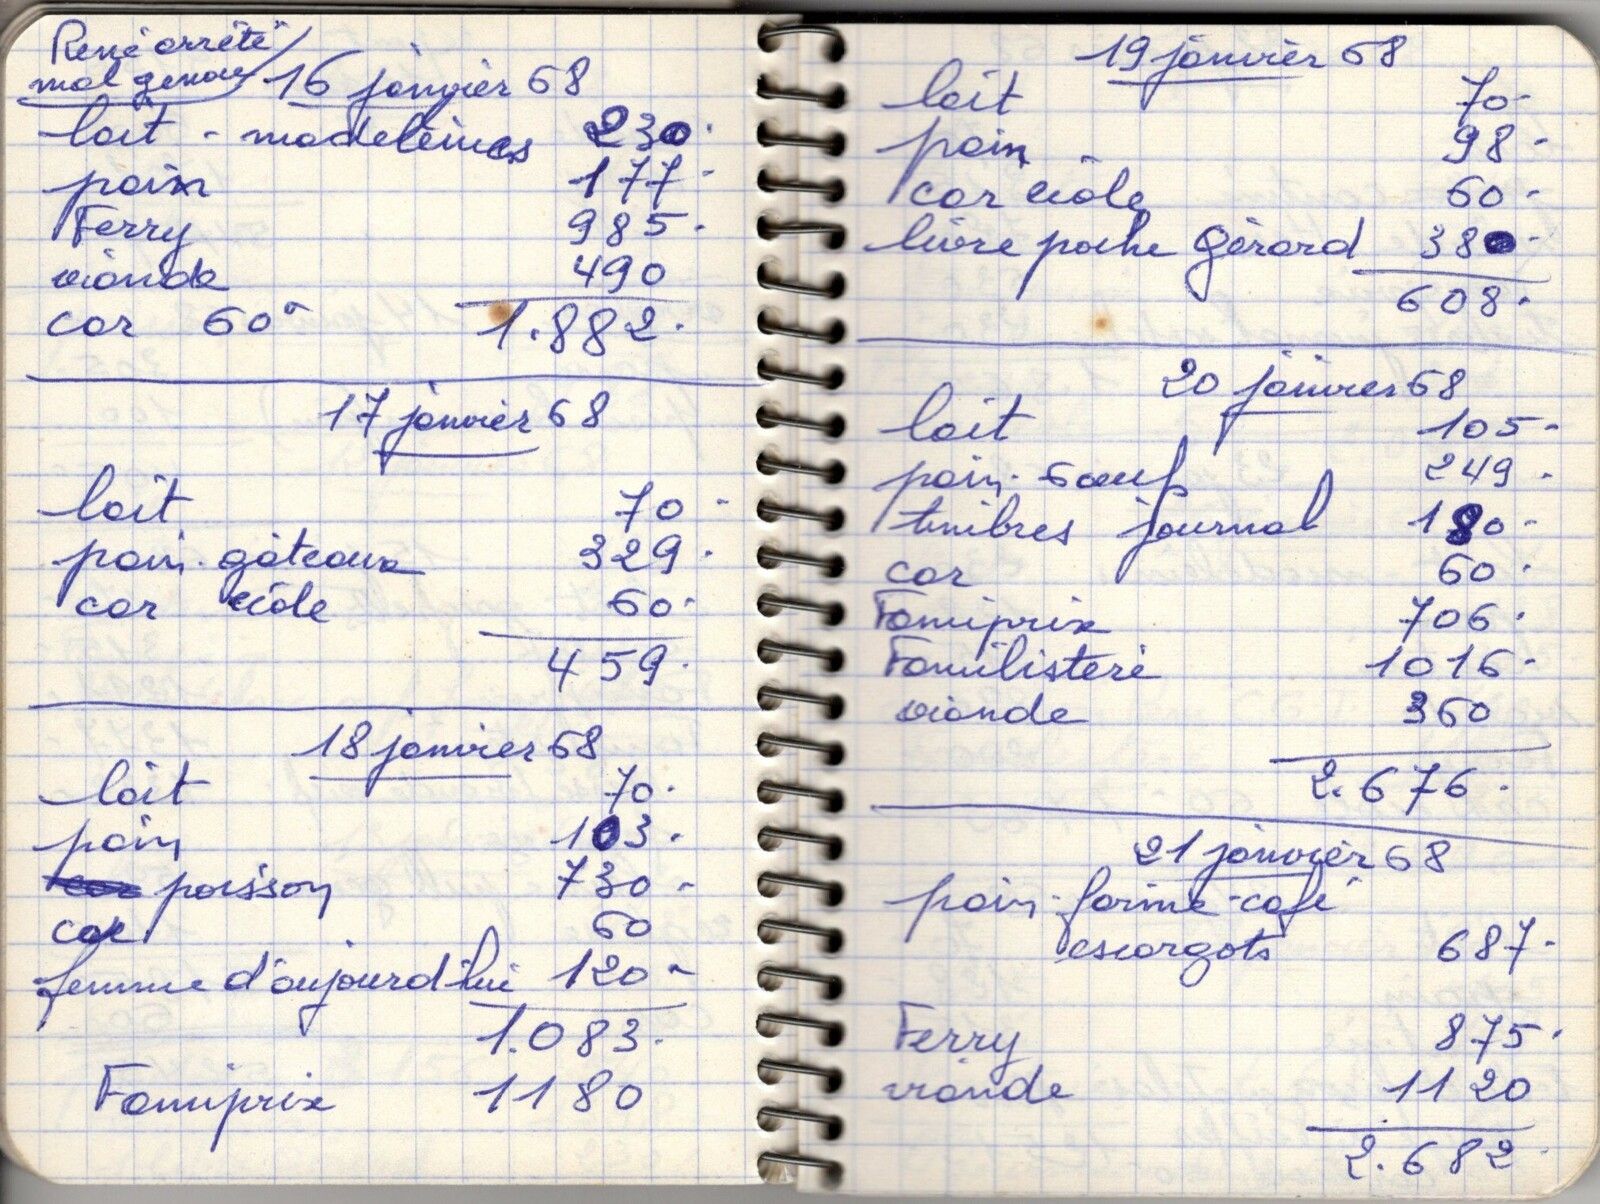 René arrêté
mal genou
16 janvier 68
lait - madeleines 230.
pain 177-
Ferry 985.
viande 490
car 60- 1.882.
17 janvier 68
lait 70-
pain. gâteaux 329.
car école 60.
459.
18 janvier 68
lait 70.
pain 103.
poisson 730-
car 60
femme d'aujourd'hui 120-
1.083.
Famiprix 1180
19 janvier 68
lait 70-
pain 98-
car école 60.
livre poche Gérard 380-
608.
20 janvier 68
lait 105-
pain. oeufs 249.
timbres journal 180-
car 60.
Famiprix 706.
Familistère 1016.
viande 360
2.676.
21 janvier 68
pain-farine-café
escargots 687-
Ferry 875.
viande 1120
2.682.